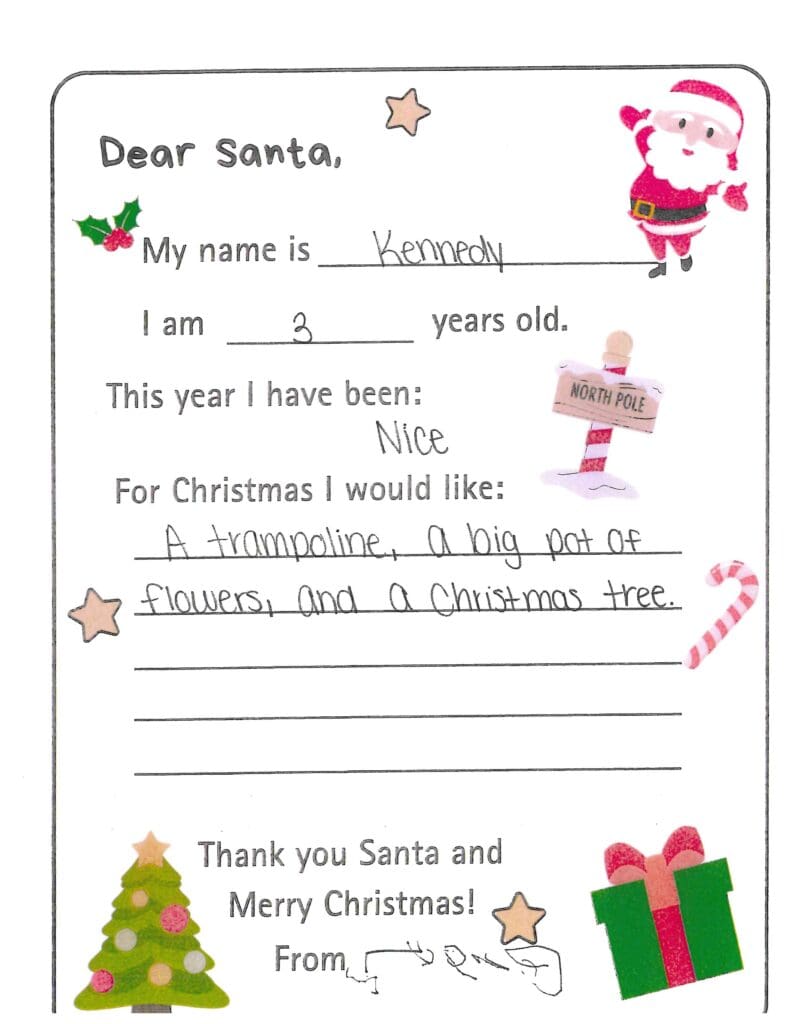 Dear Santa,
My name is Kennedy
I am 3 years old.
This year I have been:
NORTH POLE
Nice
For Christmas I would like:
A trampoline, a big pot of
flowers, and a Christmas tree.
Thank you Santa and
Merry Christmas!
From